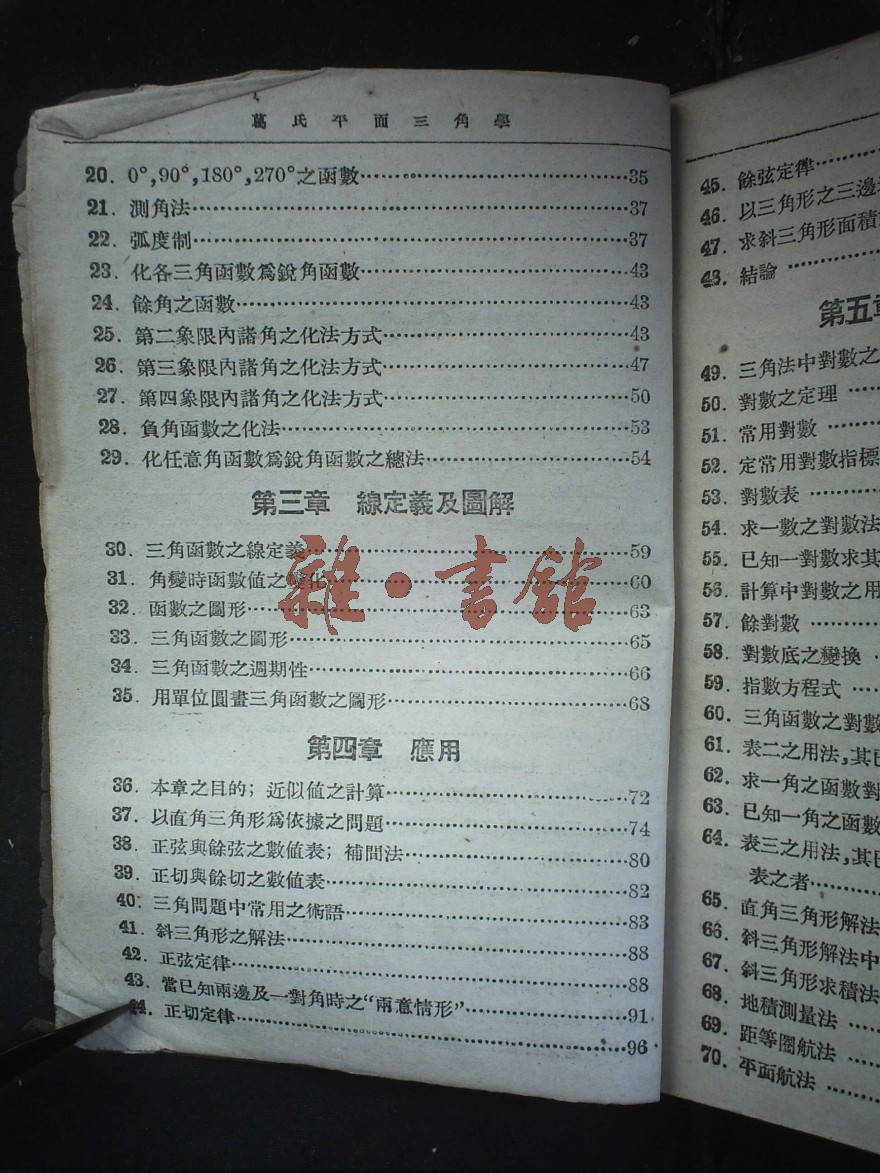 葛氏平面三角學
20. 0°,90°,180°,270°之函數……35
21. 測角法……37
22. 弧度制……37
23. 化各三角函數爲銳角函數……43
24. 餘角之函數……43
25. 第二象限內諸角之化法方式……43
26. 第三象限內諸角之化法方式……47
27. 第四象限內諸角之化法方式……50
28. 負角函數之化法……53
29. 化任意角函數爲銳角函數之總法……54
第三章 線定義及圖解
30. 三角函數之線定義……59
31. 角變時函數值之變化……60
32. 函數之圖形……63
33. 三角函數之圖形……65
34. 三角函數之週期性……66
35. 用單位圓畫三角函數之圖形……68
雜·書館
第四章 應用
36. 本章之目的；近似值之計算……72
37. 以直角三角形爲依據之問題……74
38. 正弦與餘弦之數值表；補間法……80
39. 正切與餘切之數值表……82
40. 三角問題中常用之術語……83
41. 斜三角形之解法……88
42. 正弦定律……88
43. 當已知兩邊及一對角時之“兩意情形”……91
44. 正切定律……96
45. 餘弦定律……
46. 以三角形之三邊
47. 求斜三角形面積
48. 結論……
第五章
49. 三角法中對數之
50. 對數之定理……
51. 常用對數……
52. 定常用對數指標
53. 對數表……
54. 求一數之對數法
55. 已知一對數求其
56. 計算中對數之用
57. 餘對數……
58. 對數底之變換
59. 指數方程式……
60. 三角函數之對數
61. 表二之用法,其已
62. 求一角之函數對
63. 已知一角之函數
64. 表三之用法,其已
表之者……
65. 直角三角形解法
66. 斜三角形解法中
67. 斜三角形求積法
68. 地積測量法……
69. 距等圈航法……
70. 平面航法……